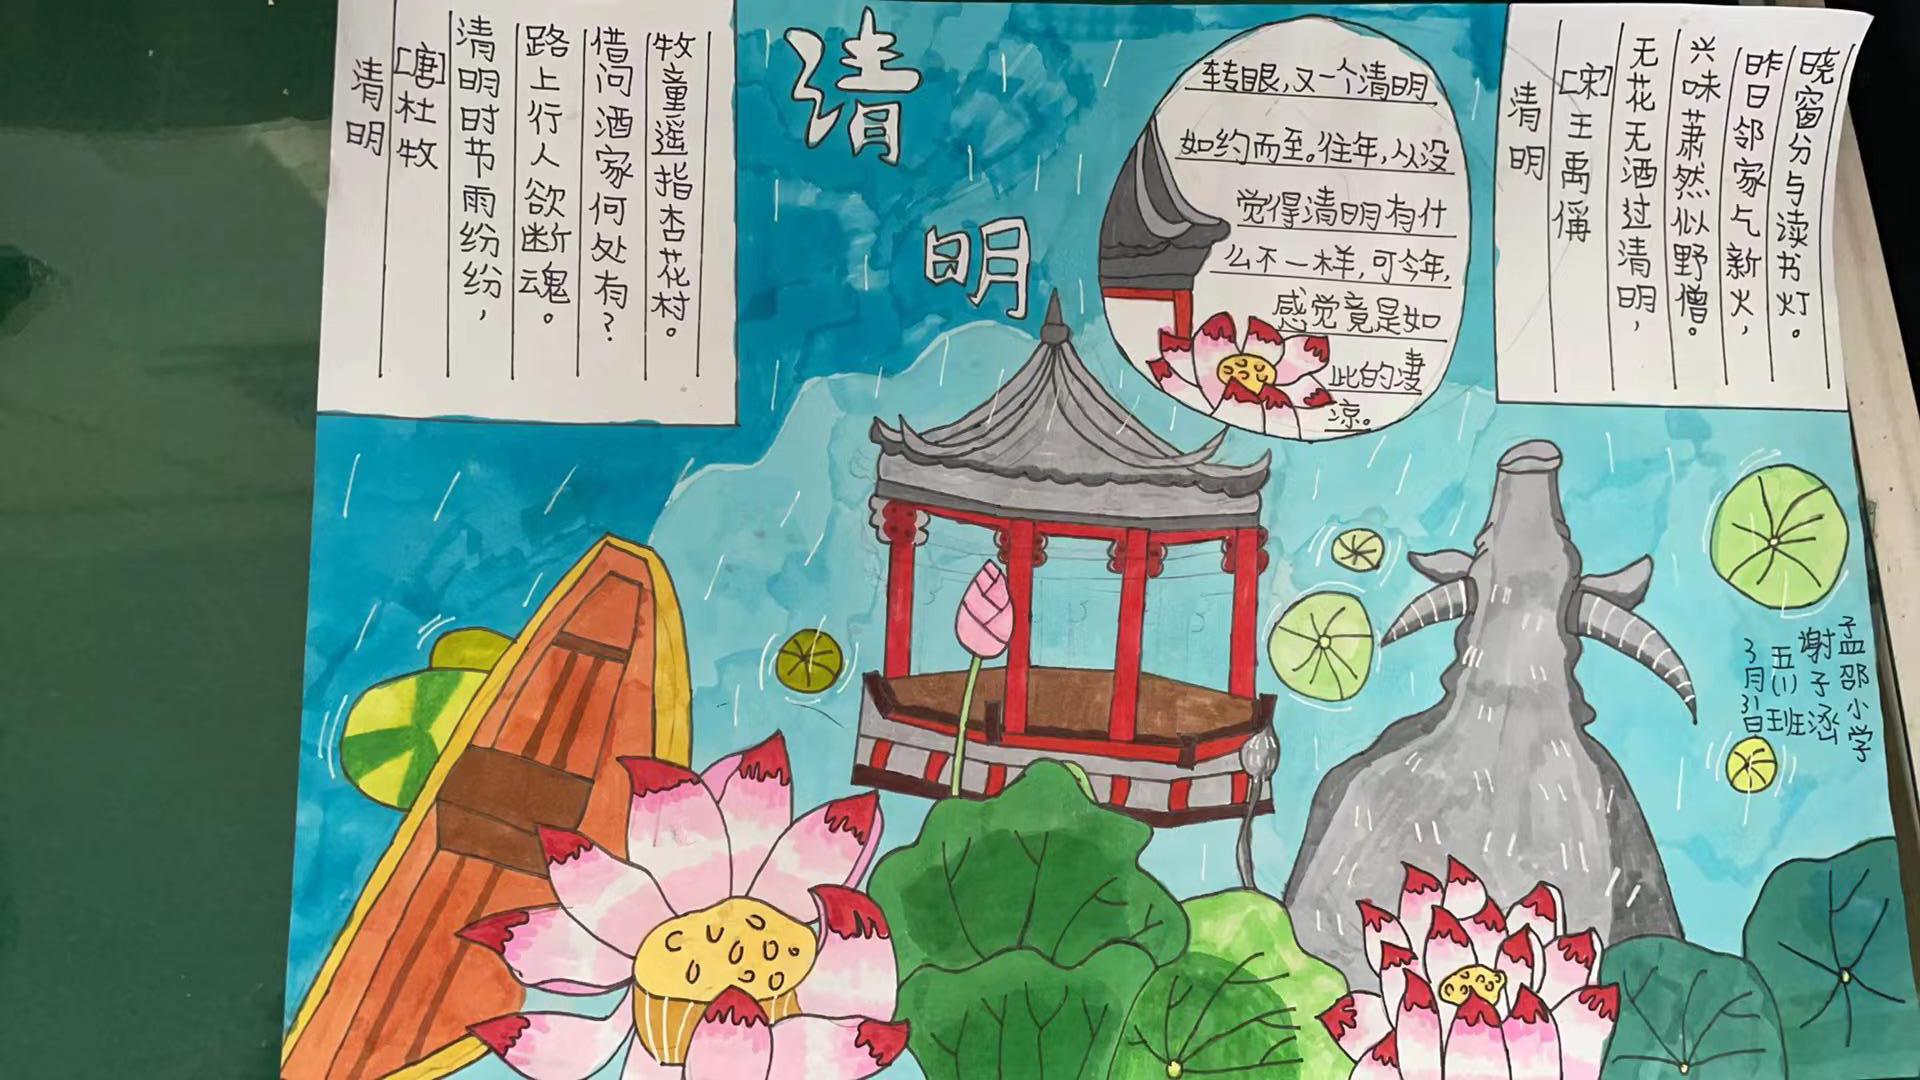 清明
[唐]杜牧
清明时节雨纷纷，
路上行人欲断魂。
借问酒家何处有？
牧童遥指杏花村。
清
明
转眼，又一个清明
如约而至。往年，从没
觉得清明有什
么不一样，可今年，
感觉竟是如
此的凄
凉。
清明
[宋]王禹偁
无花无酒过清明，
兴味萧然似野僧。
昨日邻家乞新火，
晓窗分与读书灯。
孟邵小学
谢子涵
五(1)班
3月31日